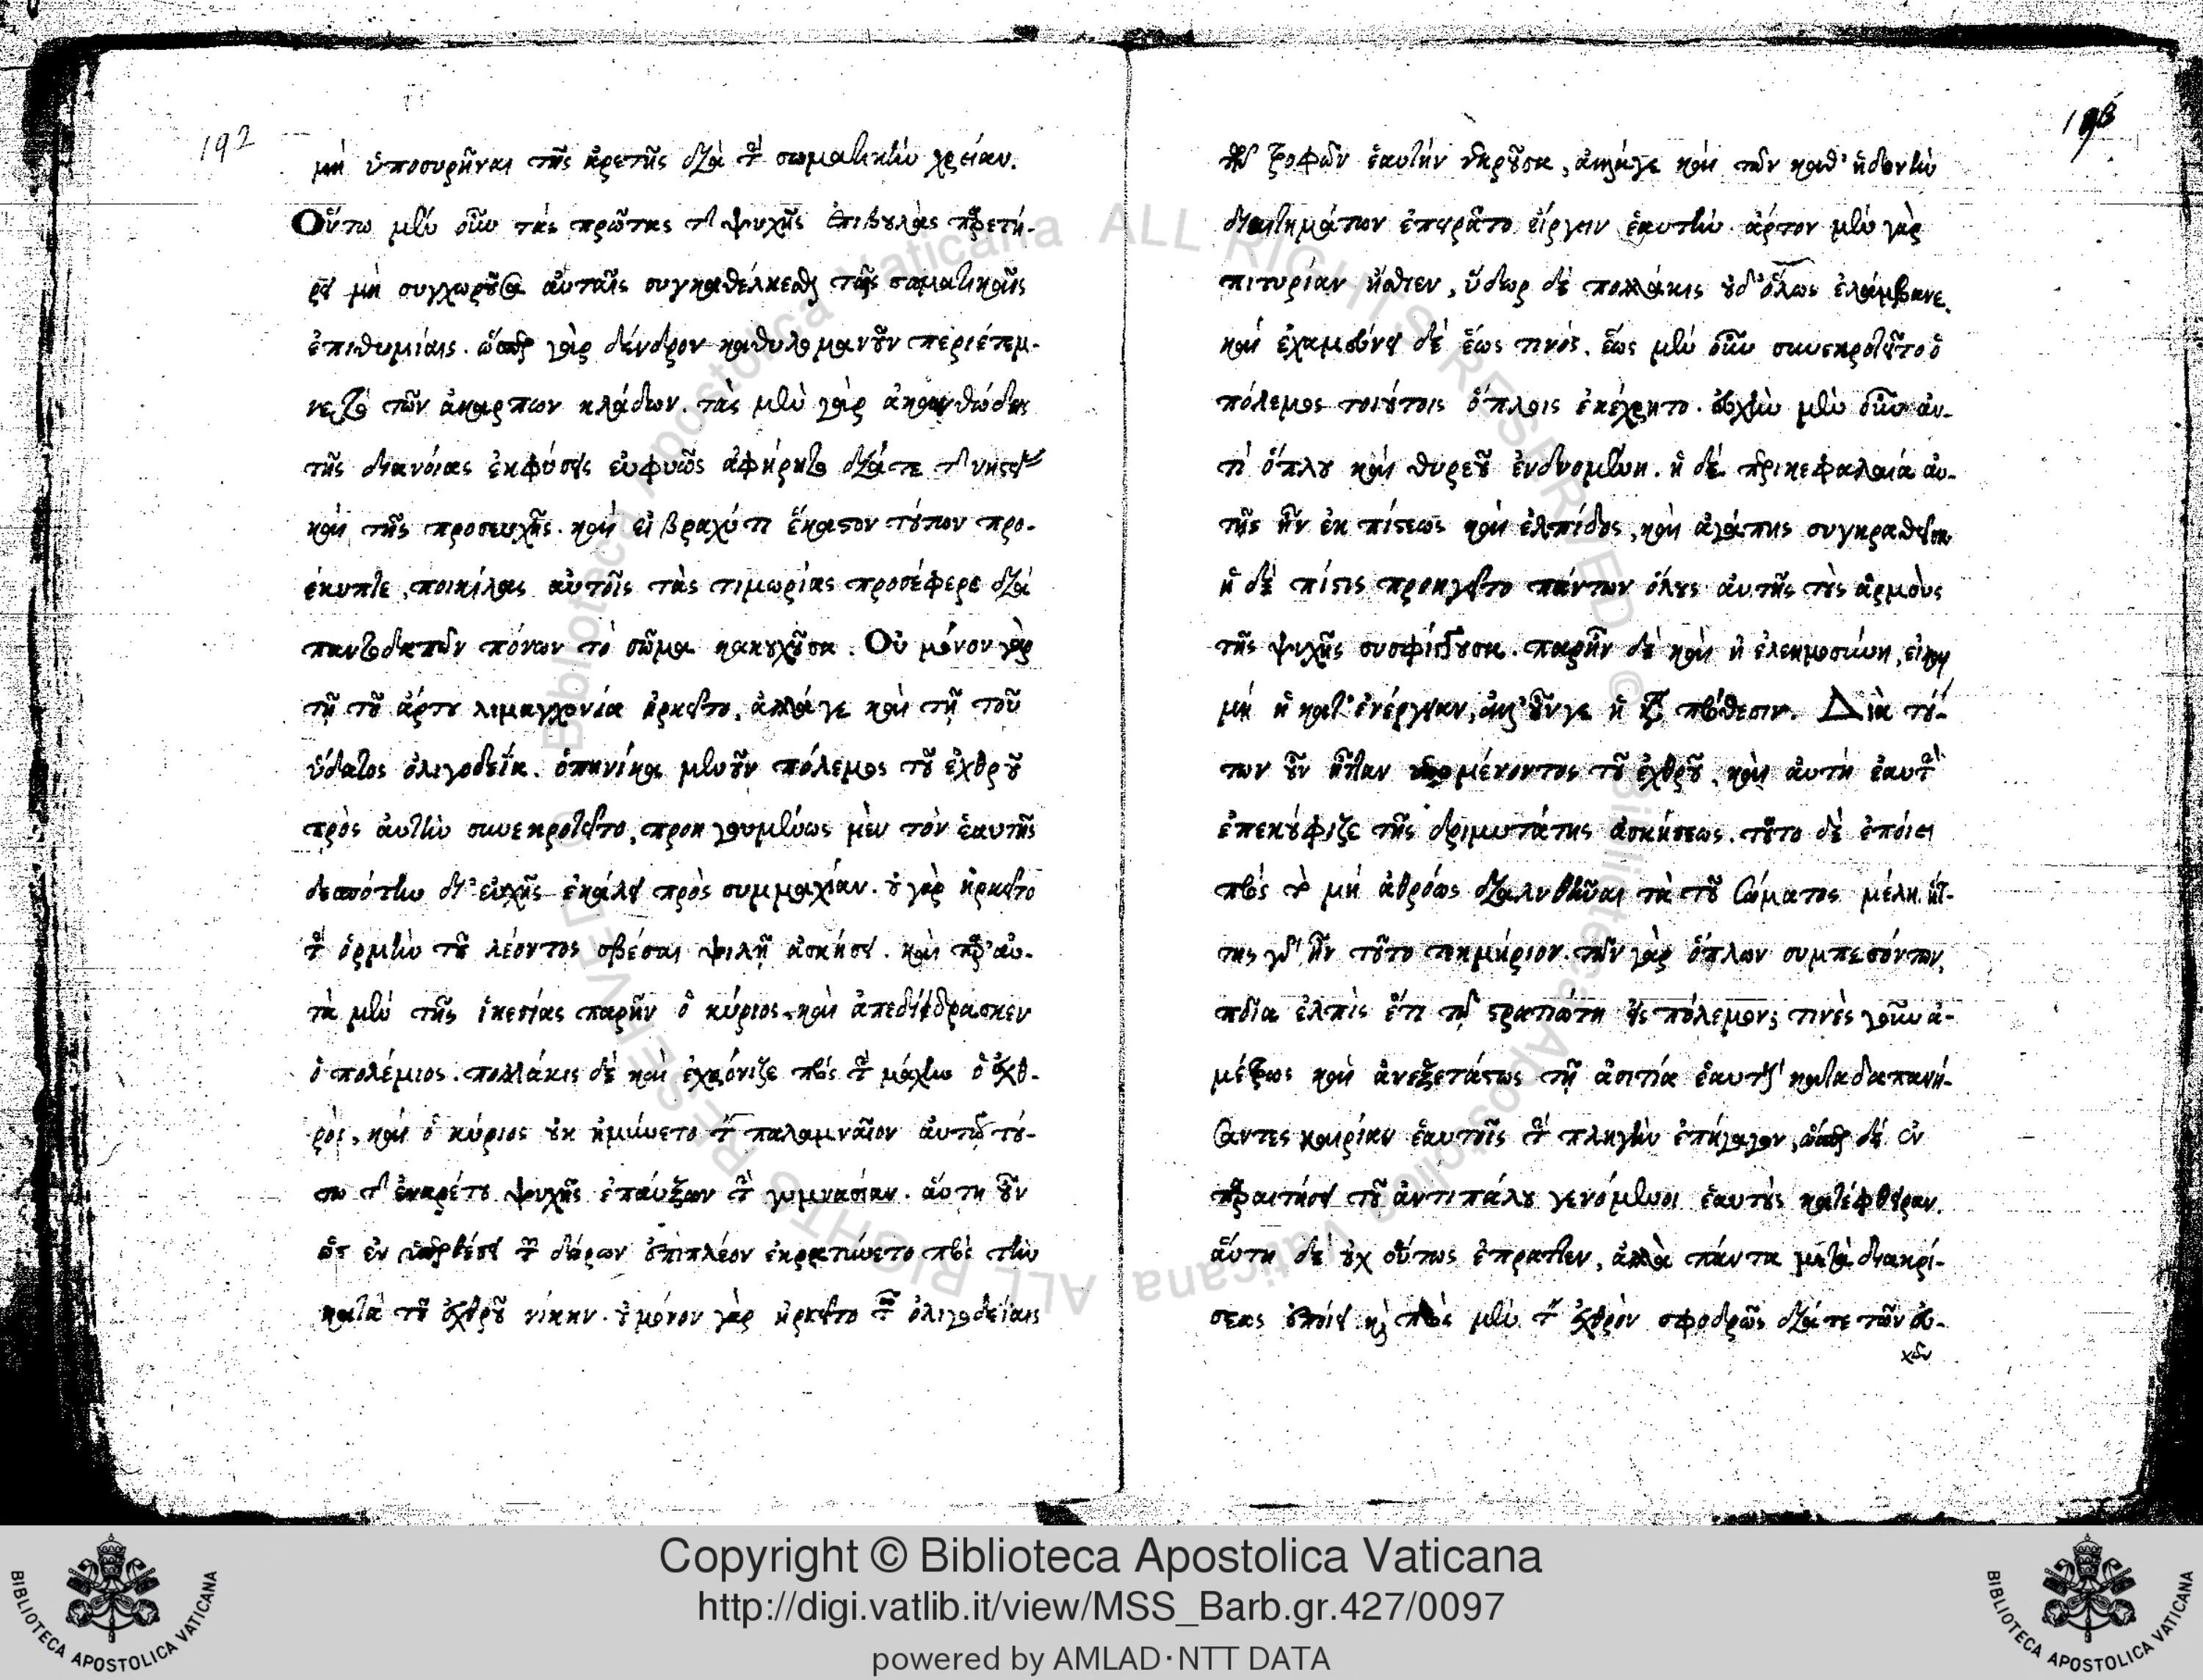 192
μὴ ὑποσυρῆναι τῆς ἀρετῆς διὰ τὴν σωματικὴν χρείαν.
Οὕτω μὲν οὖν τὰς πρώτας τῆς ψυχῆς ἐπιβουλὰς παρετή-
ρει μὴ συγχωροῦσα αὐταῖς συγκαθέλκεσθαι ταῖς σωματικαῖς
ἐπιθυμίαις. ὥσπερ γὰρ δένδρον καθυλομανοῦν περιέτεμ-
νε τῶν ἀκάρπων κλάδων. τὰς μὲν γὰρ ἀκανθώδεις
τῆς διανοίας ἐκφύσεις εὐφυῶς ἀφῄρητο διά τε τῆς νηστείας
καὶ τῆς προσευχῆς. καὶ εἰ βραχύ τι ἕκαστον τύπον προ-
έκυπτε, ποικίλας αὐτοῖς τὰς τιμωρίας προσέφερε διὰ
παντοδαπῶν πόνων τὸ σῶμα κακουχοῦσα. Οὐ μόνον γὰρ
τῇ τοῦ ἄρτου λιμαγχονίᾳ ἠρκεῖτο, ἀλλά γε καὶ τῇ τοῦ
ὕδατος ὀλιγοδεΐα. ὁπηνίκα μὲν οὖν πόλεμος τοῦ ἐχθροῦ
πρὸς αὐτὴν συνεκροτεῖτο, προηγουμένως μὲν τὸν ἑαυτῆς
δεσπότην δι' εὐχῆς ἐκάλει πρὸς συμμαχίαν. οὐ γὰρ ἠρκεῖτο
τὴν ὁρμὴν τοῦ λέοντος σβέσαι ψιλῇ ἀσκήσει. καὶ παρ' αὐ-
τὰ μὲν τῆς ἱκεσίας παρῆν ὁ κύριος καὶ ἀπεδίδρασκεν
ὁ πολέμιος. πολλάκις δὲ καὶ ἐχρόνιζε πρὸς τὴν μάχην ὁ ἐχθ-
ρός, καὶ ὁ κύριος οὐκ ἠμύνετο τὸν παλαμναῖον αὐτῷ τού-
τω τῆς ἐναρέτου ψυχῆς ἐπαύξων τὴν γυμνασίαν. αὕτη οὖν
ὡς ἐν τῶν δώρων ἐπιπλέον ἐκρατύνετο πρὸς τὴν
κατὰ τοῦ ἐχθροῦ νίκην. οὐ μόνον γὰρ ἠρκεῖτο ταῖς ὀλιγοδεΐαις
193
τῶν τροφῶν ἑαυτὴν νεκροῦσα, ἀλλά γε καὶ τῶν καθ' ἡδονὴν
διαιτημάτων ἐπειρᾶτο εἴργειν ἑαυτήν. ἄρτον μὲν γὰρ
πιτυρίαν ἤσθιεν, ὕδωρ δὲ πολλάκις οὐδ' ὅλως ἐλάμβανε.
καὶ ἐχαμεύνει δὲ ἕως τινός. ἕως μὲν οὖν συνεκροτεῖτο ὁ
πόλεμος τοιούτοις ὅπλοις ἐκέχρητο. εὐχὴν μὲν οὖν ἀν-
τὶ ὅπλου καὶ θυρεοῦ ἐνδυομένη. ἡ δὲ περικεφαλαία αὐ-
τῆς ἦν ἐκ πίστεως καὶ ἐλπίδος, καὶ ἀγάπης συγκραθεῖσα
ἡ δὲ πίστις προηγεῖτο πάντων ὅλους αὐτῆς τοὺς ἁρμοὺς
τῆς ψυχῆς συσφίγγουσα. παρῆν δὲ καὶ ἡ ἐλεημοσύνη, εἰ καὶ
μὴ ἡ κατ' ἐνέργειαν, ἀλλ' οὖν γε ἡ κατὰ πρόθεσιν. Διὰ τού-
των οὖν ἧτταν ὑπομένοντος τοῦ ἐχθροῦ, καὶ αὐτὴ ἑαυτὴν
ἐπεκούφιζε τῆς δριμυτάτης ἀσκήσεως. τοῦτο δὲ ἐποίει
πρὸς τὸ μὴ ἀθρόως διαλυθῆναι τὰ τοῦ σώματος μέλη. ἥτ-
της γὰρ ἦν τοῦτο τεκμήριον. τῶν γὰρ ὅπλων συμπεσόντων,
ποία ἐλπὶς ἔτι τῷ στρατιώτῃ εἰς πόλεμον; τινὲς γοῦν ἀ-
μέτρως καὶ ἀνεξετάστως τῇ ἀσιτίᾳ ἑαυτοὺς καταδαπανή-
σαντες καιρίαν ἑαυτοῖς τὴν πληγὴν ἐπήγαγον, ὥσπερ δὲ ἐν
παραιτήσει τοῦ ἀντιπάλου γενόμενοι ἑαυτοὺς κατέφθειραν.
αὕτη δὲ οὐχ οὕτως ἔπραττεν, ἀλλὰ πάντα μετὰ διακρί-
σεως ἐποίει καὶ πρὸς μὲν τὸν ἐχθρὸν σφοδρῶς διά τε τῶν εὐ-
χῶν
Copyright © Biblioteca Apostolica Vaticana
http://digi.vatlib.it/view/MSS_Barb.gr.427/0097
powered by AMLAD·NTT DATA